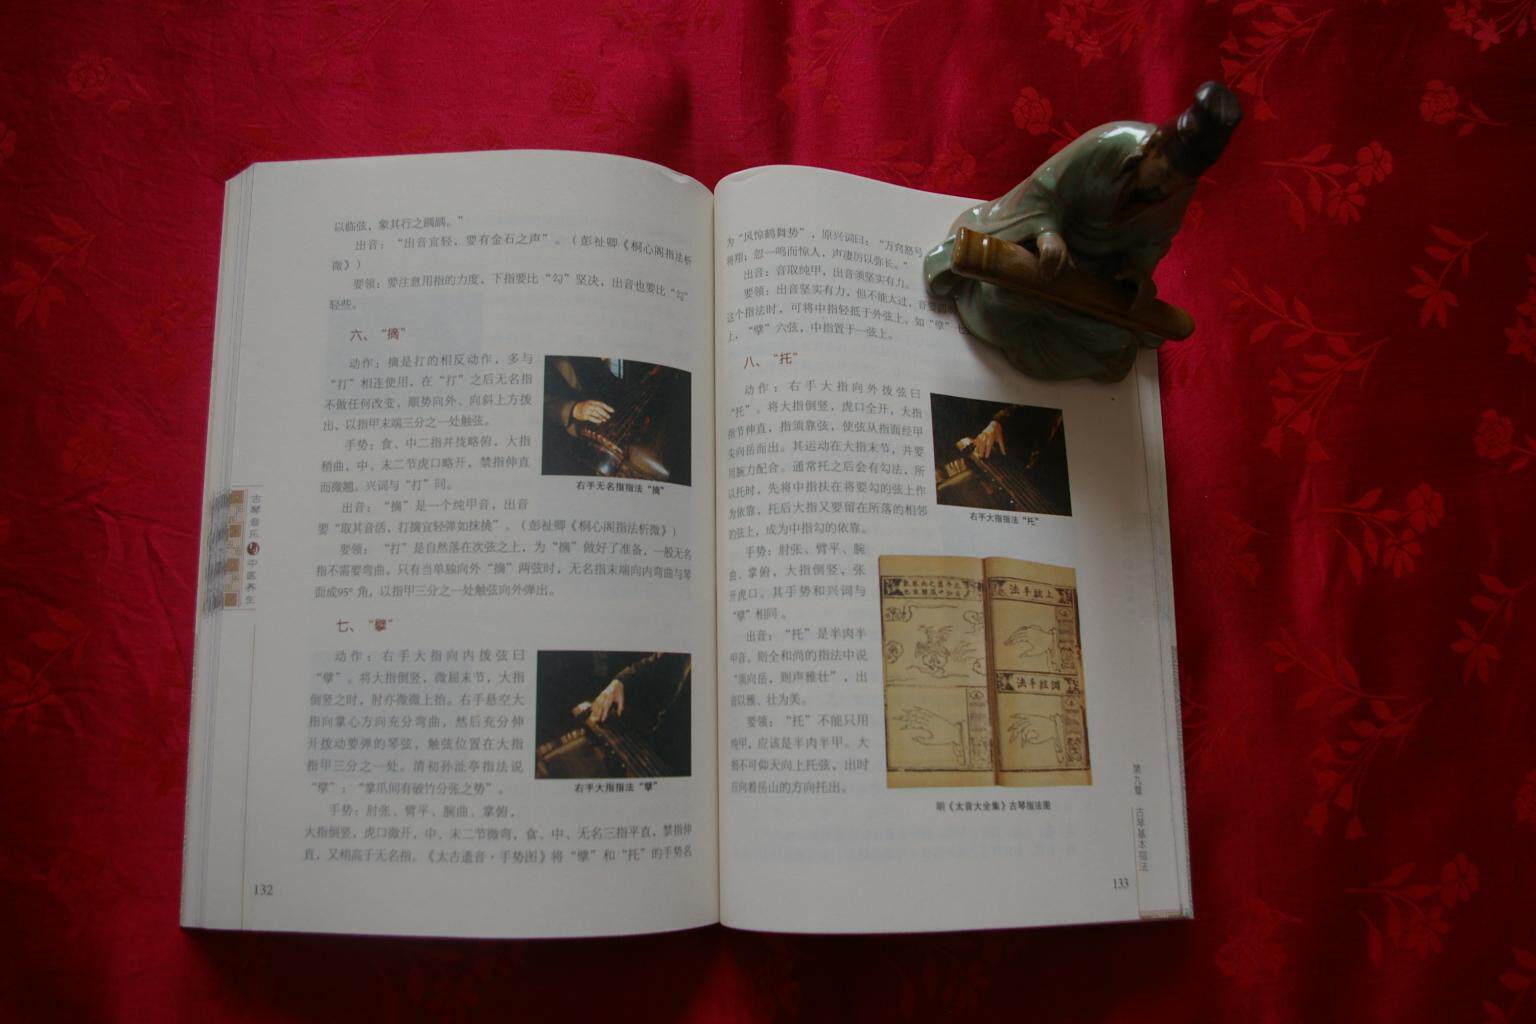 以临弦，象其行之踽踽。”
出音：“出音宜轻，要有金石之声”。（彭祉卿《桐心阁指法析
微》）
要领：要注意用指的力度，下指要比“勾”坚决，出音也要比“勾”
轻些。
六、“摘”
动作：摘是打的相反动作，多与
“打”相连使用，在“打”之后无名指
不做任何改变，顺势向外、向斜上方拨
出，以指甲末端三分之一处触弦。
手势：食、中二指并拢略俯，大指
稍曲，中、末二节虎口略开，禁指伸直
而微翘。兴词与“打”同。
右手无名指指法“摘”
出音：“摘”是一个纯甲音，出音
要“取其音活，打摘宜轻弹如抹挑”。（彭祉卿《桐心阁指法析微》）
要领：“打”是自然落在次弦之上，为“摘”做好了准备，一般无名
指不需要弯曲。只有当单独向外“摘”两弦时，无名指末端向内弯曲与琴
面成95°角，以指甲三分之一处触弦向外弹出。
七、“擘”
动作：右手大指向内拨弦曰
“擘”。将大指倒竖，微屈末节，大指
倒竖之时，肘亦微微上抬。右手悬空大
指向掌心方向充分弯曲，然后充分伸
开拨动要弹的琴弦，触弦位置在大指
指甲三分之一处。清初孙沚亭指法说
“擘”：“拿爪间有破竹分张之势”。
右手大指指法“擘”
手势：肘张、臂平、腕曲、掌俯，
大指倒竖，虎口微开，中、末二节微弯，食、中、无名三指平直，禁指伸
直，又稍高于无名指。《太古遗音·手势图》将“擘”和“托”的手势名
132
古琴音乐与中医养生
为“风惊鹤舞势”，原兴词曰：“万窍怒号
将翔；忽一鸣而惊人，声凄厉以弥长。”
出音：音取纯甲，出音须坚实有力。
要领：出音坚实有力，但不能太过，音要
这个指法时，可将中指轻抵于外弦上。如“擘”七
上，“擘”六弦，中指置于一弦上。
八、“托”
动作：右手大指向外拨弦曰
“托”。将大指倒竖，虎口全开，大指
指节伸直，指须靠弦，使弦从指面经甲
尖向岳而出。其运动在大指末节，并要
用腕力配合。通常托之后会有勾法，所
以托时，先将中指扶在将要勾的弦上作
为依靠，托后大指又要留在所落的相邻
的弦上，成为中指勾的依靠。
右手大指指法“托”
手势：肘张、臂平、腕
曲、掌俯，大指倒竖，张
开虎口。其手势和兴词与
“擘”相同。
出音：“托”是半肉半
甲音。则全和尚的指法中说
“须向岳，则声雅壮”，出
音以雅、壮为美。
要领：“托”不能只用
纯甲，应该是半肉半甲。大
指不可仰天向上托弦，出时
应向着岳山的方向托出。
法手絃上
法手絃調
明《太音大全集》古琴指法图
第九章 古琴基本指法
133